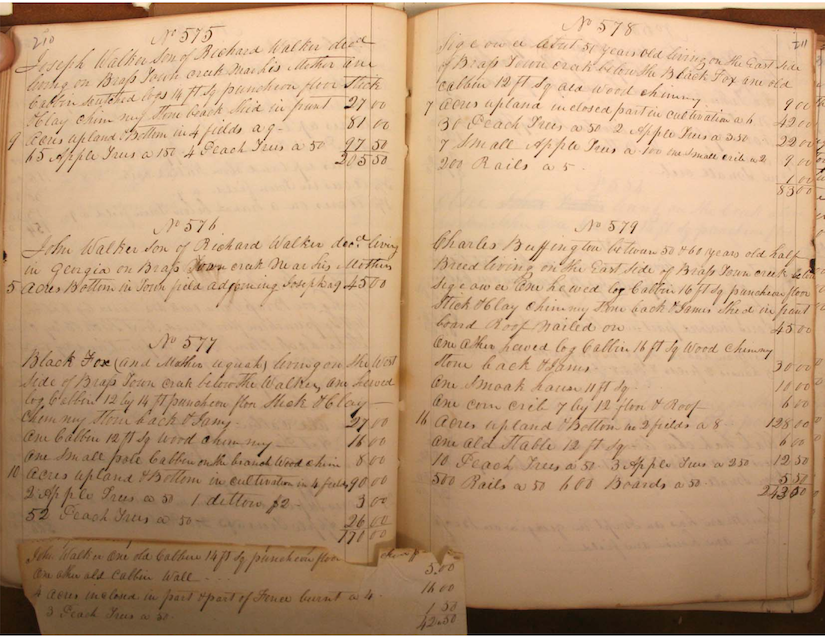 210
No 575
Joseph Walker Son of Richard Walker decd
living on Brass Town creek Near his Mother one
Cabbin Notched logs 14 ft Sq puncheon floor Stick
& Clay chimney Stone back Shed in front 27 00
9 Acres upland & Bottom in 4 fields a 9 - 81 00
65 Apple Trees a 150 4 Peach Trees a 50 97 50
205 50
No 576
John Walker Son of Richard Walker decd living
in Georgia on Brass Town creek Near his Mothers
5 Acres Bottom in Town field adjoining Joseph a 9 45 00
No 577
Black Fox (and Mother uquah) living on the West
Side of Brass Town creek below the Walker, one hewed
log Cabbin 12 by 14 ft puncheon floor Stick & Clay -
chimney Stone back & Jams - 27 00
One Cabbin 12 ft Sq Wood chimney - 16 00
One Small pole Cabbin on the branch Wood chim 8 00
10 Acres upland & Bottom in cultivation in 4 fields 90 00
2 Apple Trees a 50 1 ditto 2 - 3 00
52 Peach Trees a 50 - 26 00
170 00
John Walker One old Cabbin 14 ft Sq puncheon floor
3.00
One other old Cabbin Wall - - -
16 00
4 Acres inclosed in part & part of Fence burnt a 4 -
3 Peach Trees a 50 50
42.50
211
No 578
about 50 years old living on the East Side
of Brass Town creek below the Black Fox one old
cabbin 12 ft Sq old Wood chimney - 9 00
7 Acres upland inclosed part in cultivation a 6 42 00
30 Peach Trees a 50 2 Apple Trees a 350 22 00
7 Small Apple Trees a 100 one Small crib a 2 9 00
200 Rails a 5 - 1 00
83 00
No 579
Charles Buffington betwean 50 & 60 years old half
Breed living on the East Side of Brass Town creek below
One hewed log Cabbin 16 ft Sq puncheon floor
Stick & Clay chimney Stone back & Jams Shed in front
board Roof Nailed on 45 00
One other hewed log Cabbin 16 ft Sq Wood chimney
Stone back & Jams 30 00
One Smoak house 11 ft Sq - 10 00
One corn crib 7 by 12 floor & Roof 6 00
16 Acres upland & Bottom in 2 fields a 8 - 128 00
One old Stable 12 ft Sq - 6 00
10 Peach Trees a 50 3 Apple Trees a 250 12 50
500 Rails a 50 600 Boards a 50 5 50
243 00